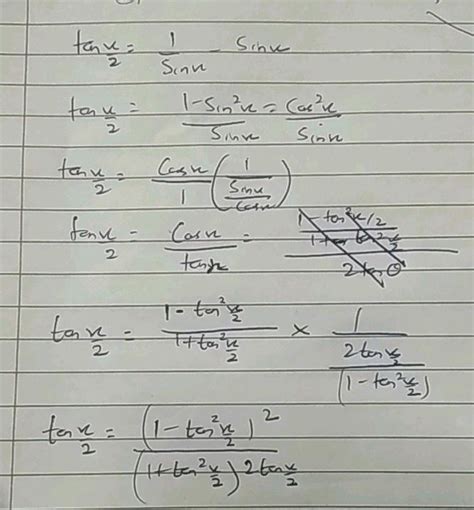 tan x/2 = 1/Sinx - Sinx
tan x/2 = (1-Sin²x)/Sinx = Cos²x/Sinx
tan x/2 = Cosx/1 (1/(Sinx/Cosx))
tan x/2 = Cosx/tanx = (1-tan²x/2)/(1+tan²x/2)/2tanθ
tan x/2 = (1-tan²x/2)/(1+tan²x/2) × 1/(2tan x/2/(1-tan²x/2))
tan x/2 = (1-tan²x/2)²/(1+tan²x/2) 2tan x/2